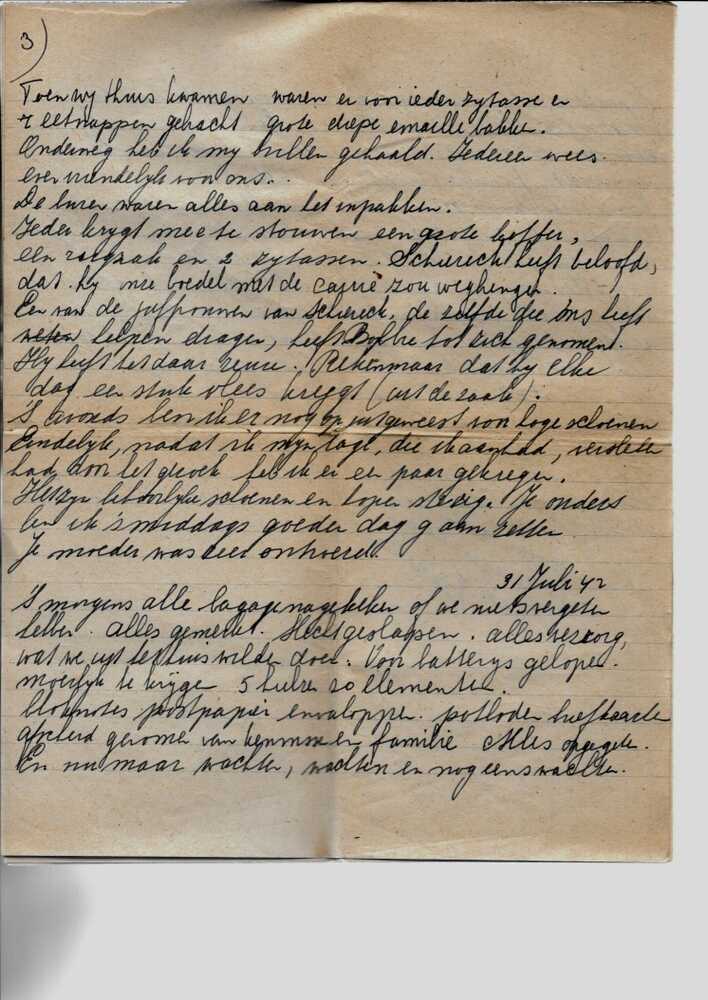 3)
Toen wy thuis kwamen waren er voor ieder zytasse en
2 eetnappen gebracht grote diepe emaille bakken.
Onderweg heb ik my brillen gehaald. Iedereen wees
even vriendelyk voor ons.
De buren waren alles aan het inpakken.
Ieder krygt mee te stouwen een grote koffer,
een rugzak en 2 zytassen. Schiereck heeft beloofd,
dat hy nie boedel met de carrié zou weghengen.
Een van de juffrouwen van Schiereck, de zelfde die ons heeft
helpen dragen, heeft Bobbie tot zich genomen.
Hy heeft het daar reuze. Reken maar dat hy elke
dag een stuk vlees kreegt (uit de zaak).
S avonds ben ik er nog op uitgeweest voor hoge schoenen
Eindelyk, nadat ik myn tage, die ik aanhad, versleten
had, voor het gezoek heb ik er een paar gekregen.
Het zyn behoorlyke schoenen en lopen stevig. Je ouders
ben ik 's middags goeden dag gaan zetten
Je moeder was zeer ontroerd.
31 Juli 42
S morgens alle bagage nagekeken of we niets vergeten
hebben. alles gemerkt. Slecht geslapen. alles verzorg,
wat we uit het huis wilden doen. Voor batterys gelopen.
moeilyk te krygen 5 huize 20 ellementen.
Bloknotes postpapier envaloppen potloden briefkaarten
afscheid genomen van kennissen en familie Alles opgegeten.
En nu maar wachten, wachten en nog eens wachten.